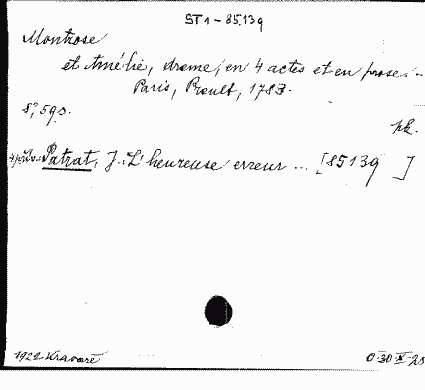 ST 1 - 85.139
Montrose
et Amélie, drame, en 4 actes et en prose. -
Paris, Prault, 1783.
8°, 59 s.
pk.
Patrat, J.: L'heureuse erreur ... [85139]
1922 Kravaře
0-30-X-25